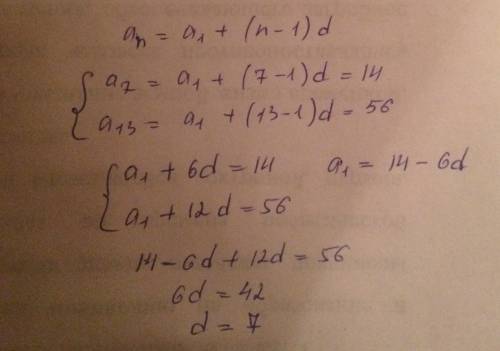 aₙ = a₁ + (n-1)d
a₇ = a₁ + (7-1)d = 14
a₁₃ = a₁ + (13-1)d = 56
a₁ + 6d = 14 a₁ = 14 - 6d
a₁ + 12d = 56
14 - 6d + 12d = 56
6d = 42
d = 7